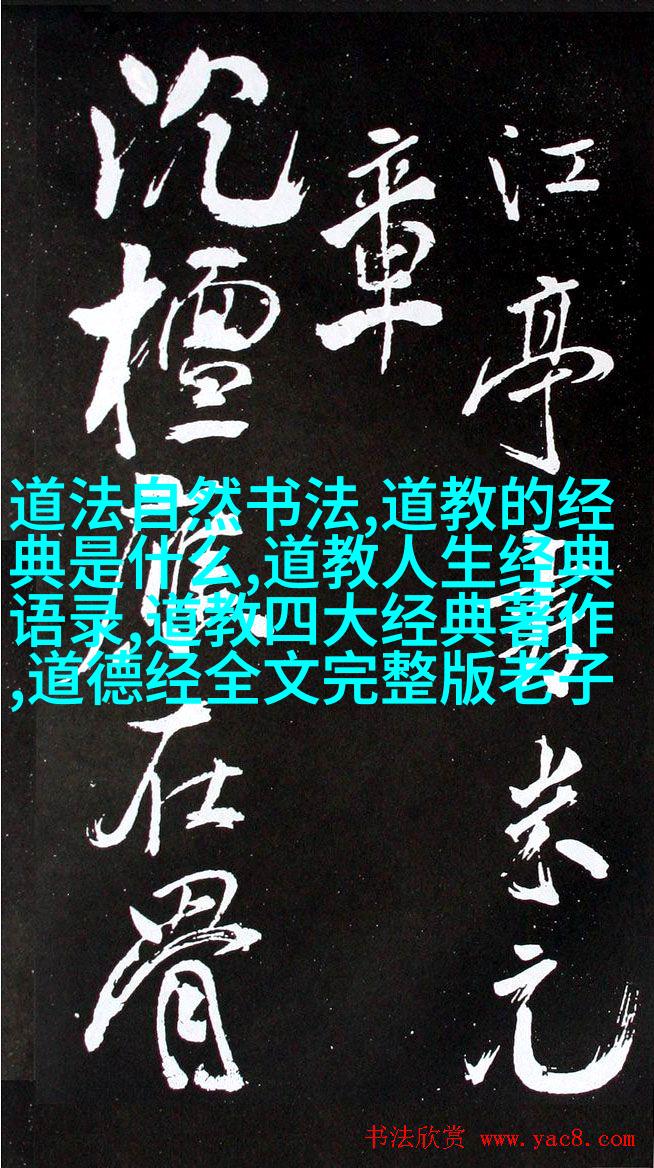 江亭米元
章
沉檀在骨
道法自然书法,道教的经
典是什么,道教人生经典
语录,道教四大经典著作
,道德经全文完整版老子
书法欣赏 www.yac8.com